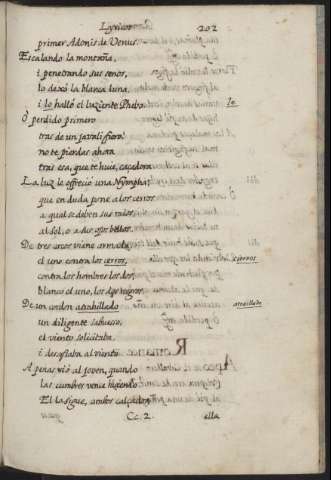 Lyricas 202
primer Adonis de Venus.
Escalando la montaña,
i penetrando sus senos,
lo dexò la blanca luna,
i lo hallò el luziente Phebo. lo
O perdido primero
tras de un javalì fiero!
no te pierdas ahora
tras esa, que te huie, caçadora.
La luz le ofreciò una Nympha;
que en duda pone a los cerros
a qual se deben sus raios
al sol, o a sus ojos bellos.
De tres arcos viene armada,
el uno contra los cerros, ciervos
contra los hombres los dos,
blanco el uno, los dos negros.
De un cordon atrahillado atrahillado
un diligente sabueso,
el viento solicitaba,
i desafiaba al viento.
Apenas viò al joven, quando
las cumbres vence huiendo.
El la sigue, ambos calçados,
Cc. 2. ella